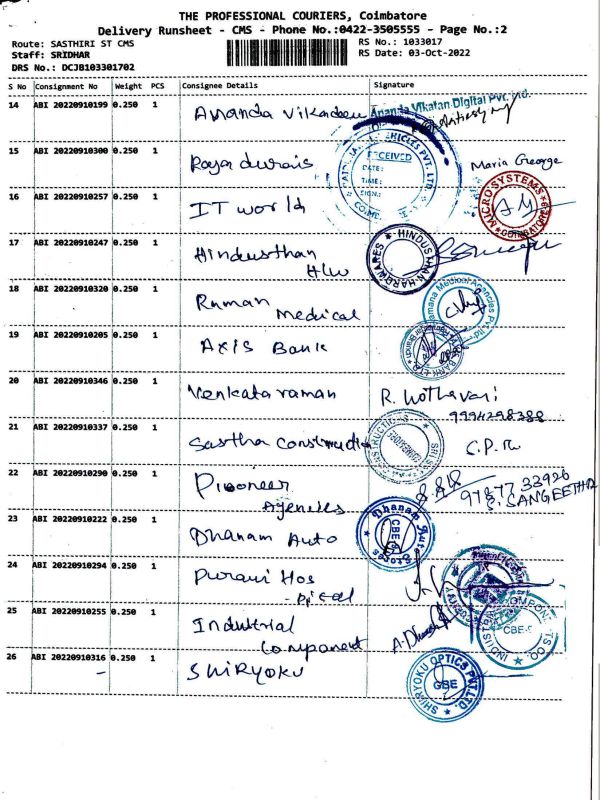 THE PROFESSIONAL COURIERS, Coimbatore
Delivery Runsheet - CMS - Phone No.:0422-3505555 - Page No.:2
Route: SASTHIRI ST CMS
RS No.: 1033017
Staff: SRIDHAR
RS Date: 03-Oct-2022
DRS No.: DCJB103301702
S No Consignment No Weight PCS Consignee Details Signature
14 ABI 20220910199 0.250 1 Ananda Vikadeen Ananda Vikatan Digital Pvt. Ltd.
15 ABI 20220910300 0.250 1 Raja durais Maria George
RECEIVED
DATE:
TIME:
SIGN:
16 ABI 20220910257 0.250 1 IT world MICRO SYSTEMS COIMBATORE
17 ABI 20220910247 0.250 1 Hindusthan HINDUSTHAN HARDWARES
H/W
18 ABI 20220910320 0.250 1 Raman Ramana Medical Agencies Pvt Ltd
Medical
19 ABI 20220910205 0.250 1 Axis Bank
20 ABI 20220910346 0.250 1 Venkataraman R.
9994298388
21 ABI 20220910337 0.250 1 Sastha Construction C.P.
22 ABI 20220910290 0.250 1 Pioneer 97877 33926
Agencies S. SANGEETHA
23 ABI 20220910222 0.250 1 Dhanam Auto Dhanam Auto Stores CBE
24 ABI 20220910294 0.250 1 Purani Hos
-pital
25 ABI 20220910255 0.250 1 Industrial INDUSTRIAL COMPONENTS CO. CBE-9
Component
26 ABI 20220910316 0.250 1 SHIRYOKU SHIRYOKU OPTICS PVT.LTD. CBE